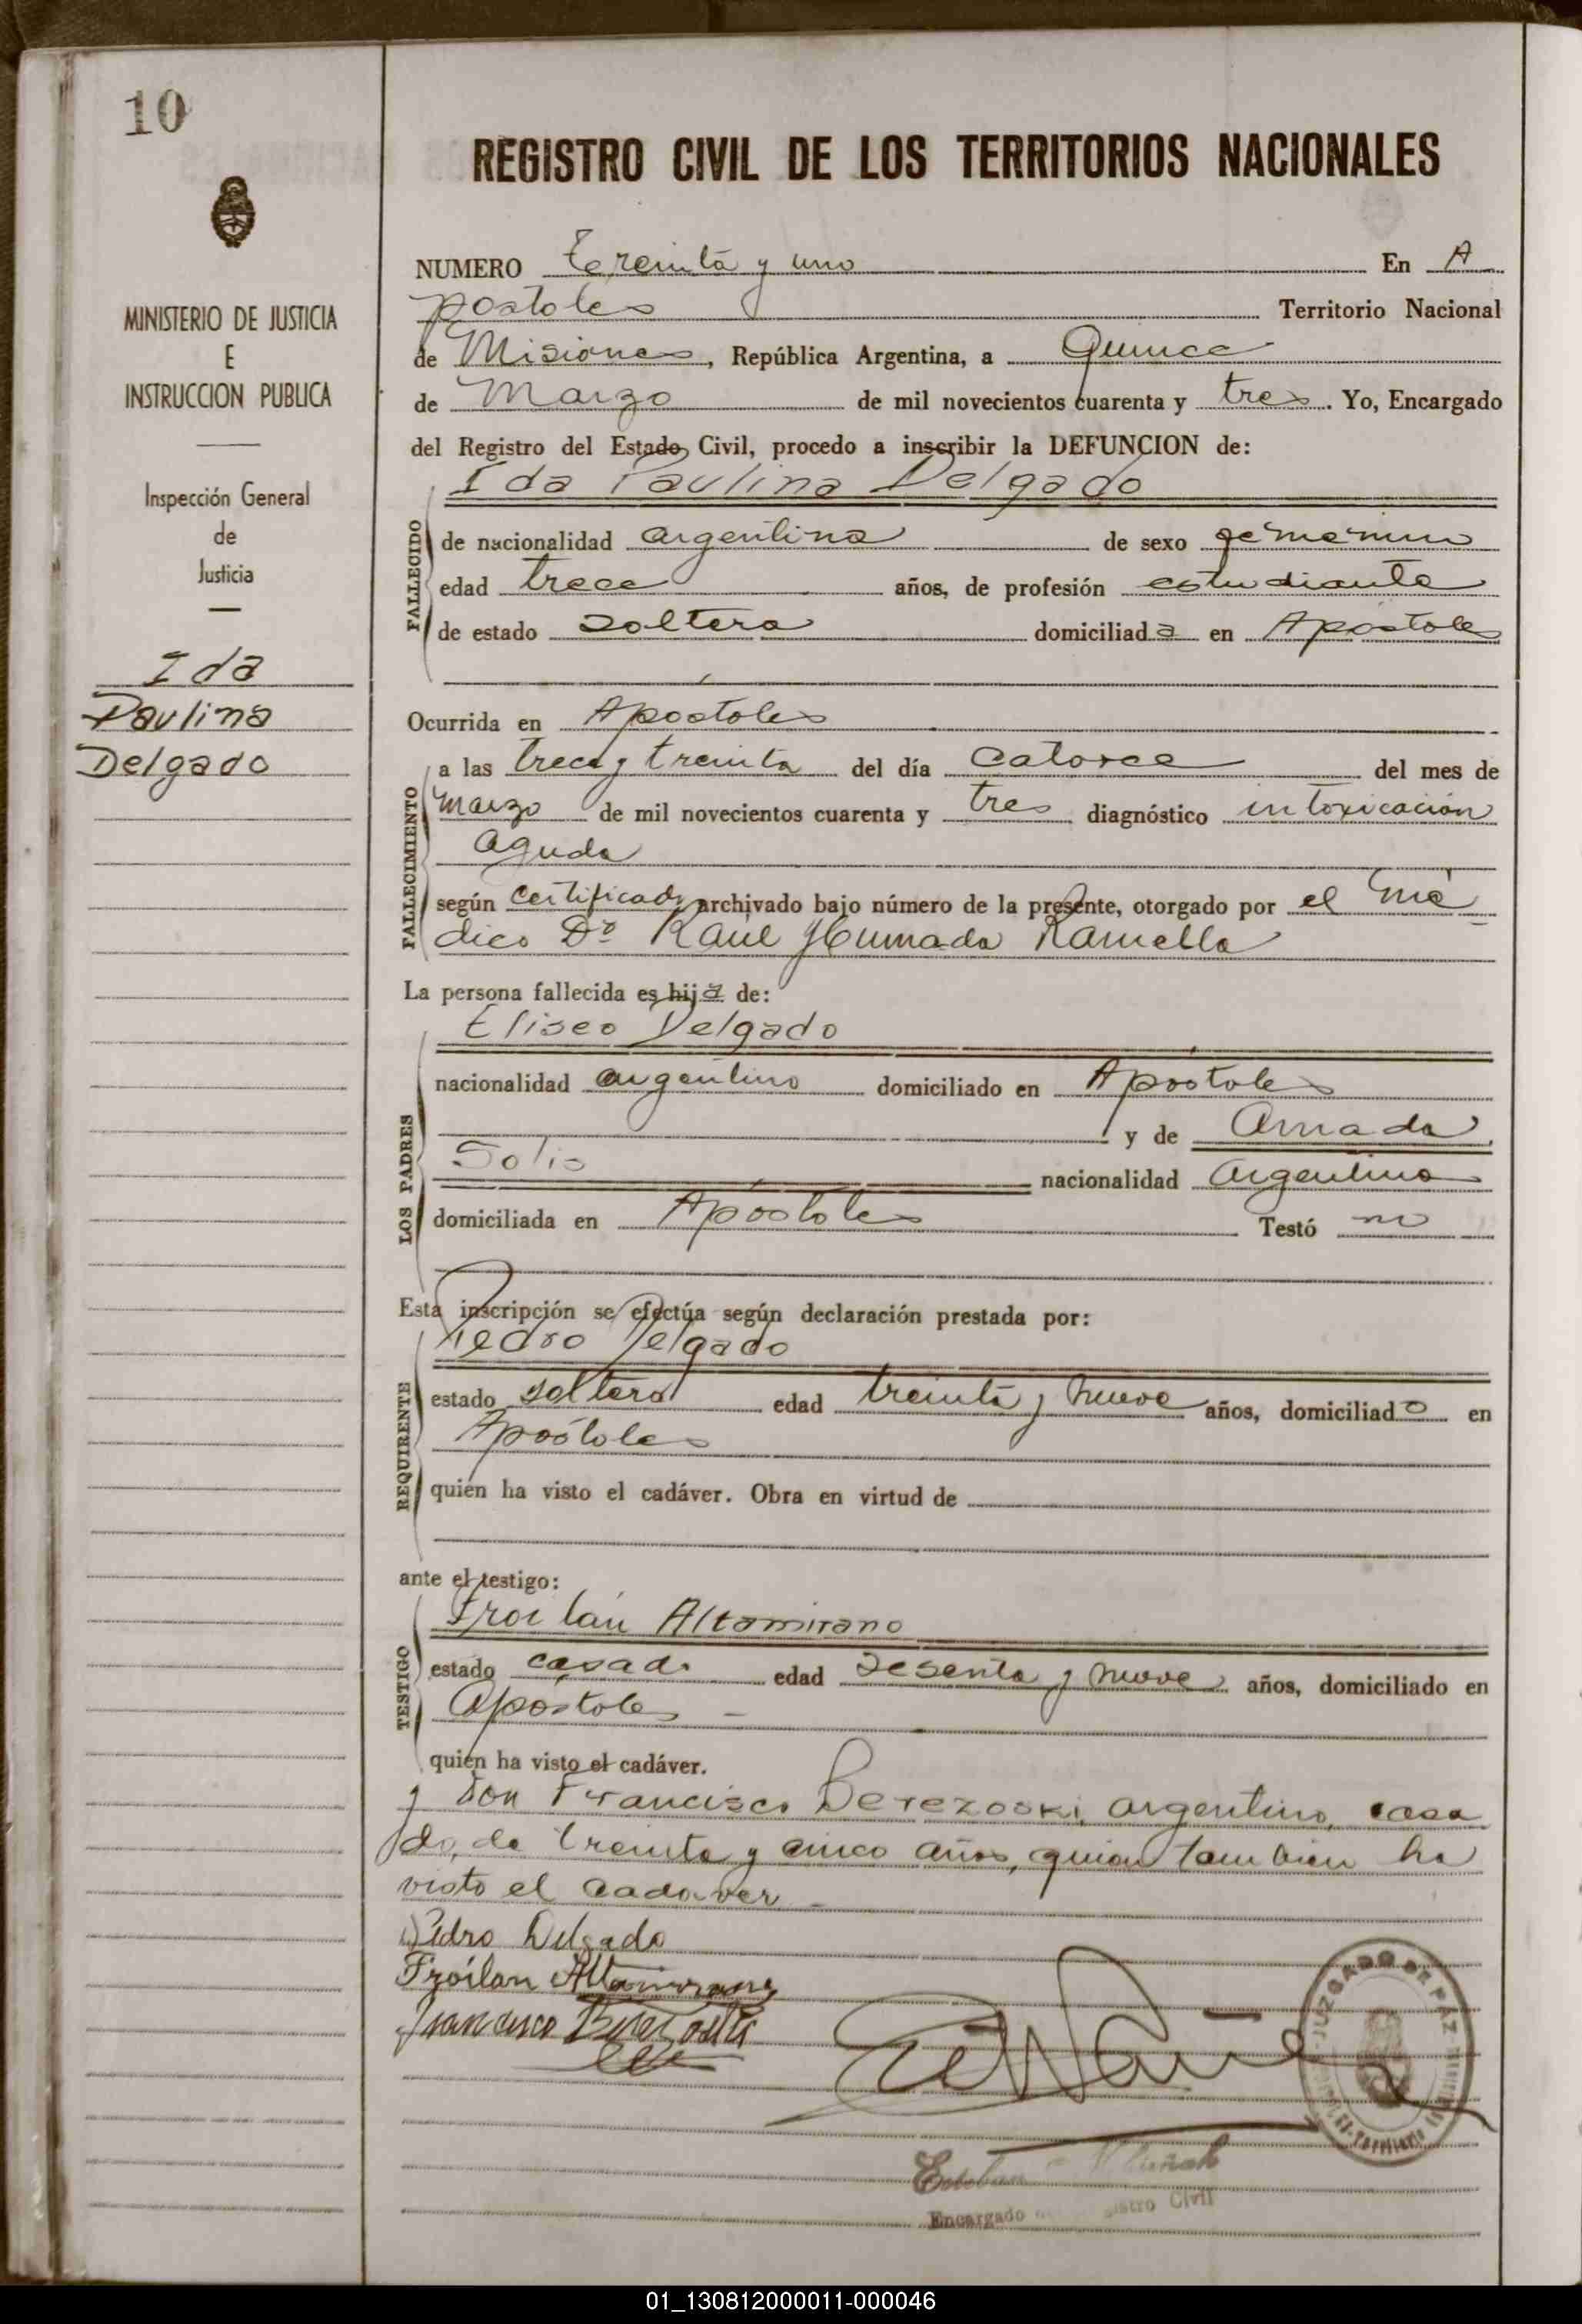 10
REGISTRO CIVIL DE LOS TERRITORIOS NACIONALES
MINISTERIO DE JUSTICIA
E
INSTRUCCION PUBLICA
Inspección General
de
Justicia
Ida
Paulina
Delgado
NUMERO treinta y uno En A
postoles Territorio Nacional
de Misiones, República Argentina, a Quince
de Marzo de mil novecientos cuarenta y tres. Yo, Encargado
del Registro del Estado Civil, procedo a inscribir la DEFUNCION de:
Ida Paulina Delgado
FALLECIDO
de nacionalidad argentina de sexo femenino
edad trece años, de profesión estudiante
de estado soltera domiciliada en Apóstoles
Ocurrida en Apóstoles
FALLECIMIENTO
a las trece y treinta del día catorce del mes de
marzo de mil novecientos cuarenta y tres diagnóstico intoxicación
aguda
según certificado archivado bajo número de la presente, otorgado por el mé
dico Dr Raúl Humada Ramella
La persona fallecida es hija de:
Eliseo Delgado
LOS PADRES
nacionalidad argentino domiciliado en Apóstoles
y de Amada
Solis nacionalidad argentina
domiciliada en Apóstoles Testó no
Esta inscripción se efectúa según declaración prestada por:
Pedro Delgado
REQUIRENTE
estado soltero edad treinta y nueve años, domiciliado en
Apóstoles
quién ha visto el cadáver. Obra en virtud de
ante el testigo:
Froilán Altamirano
TESTIGO
estado casado edad sesenta y nueve años, domiciliado en
Apóstoles
quién ha visto el cadáver.
y don Francisco Berezoski, argentino, casa
do, de treinta y cinco años, quien tambien ha
visto el cadaver
Pedro Delgado
Froilan Altamirano
Francisco Berezoski
JUZGADO DE PAZ
Territorio
Esteban
Encargado Registro Civil
01_130812000011-000046